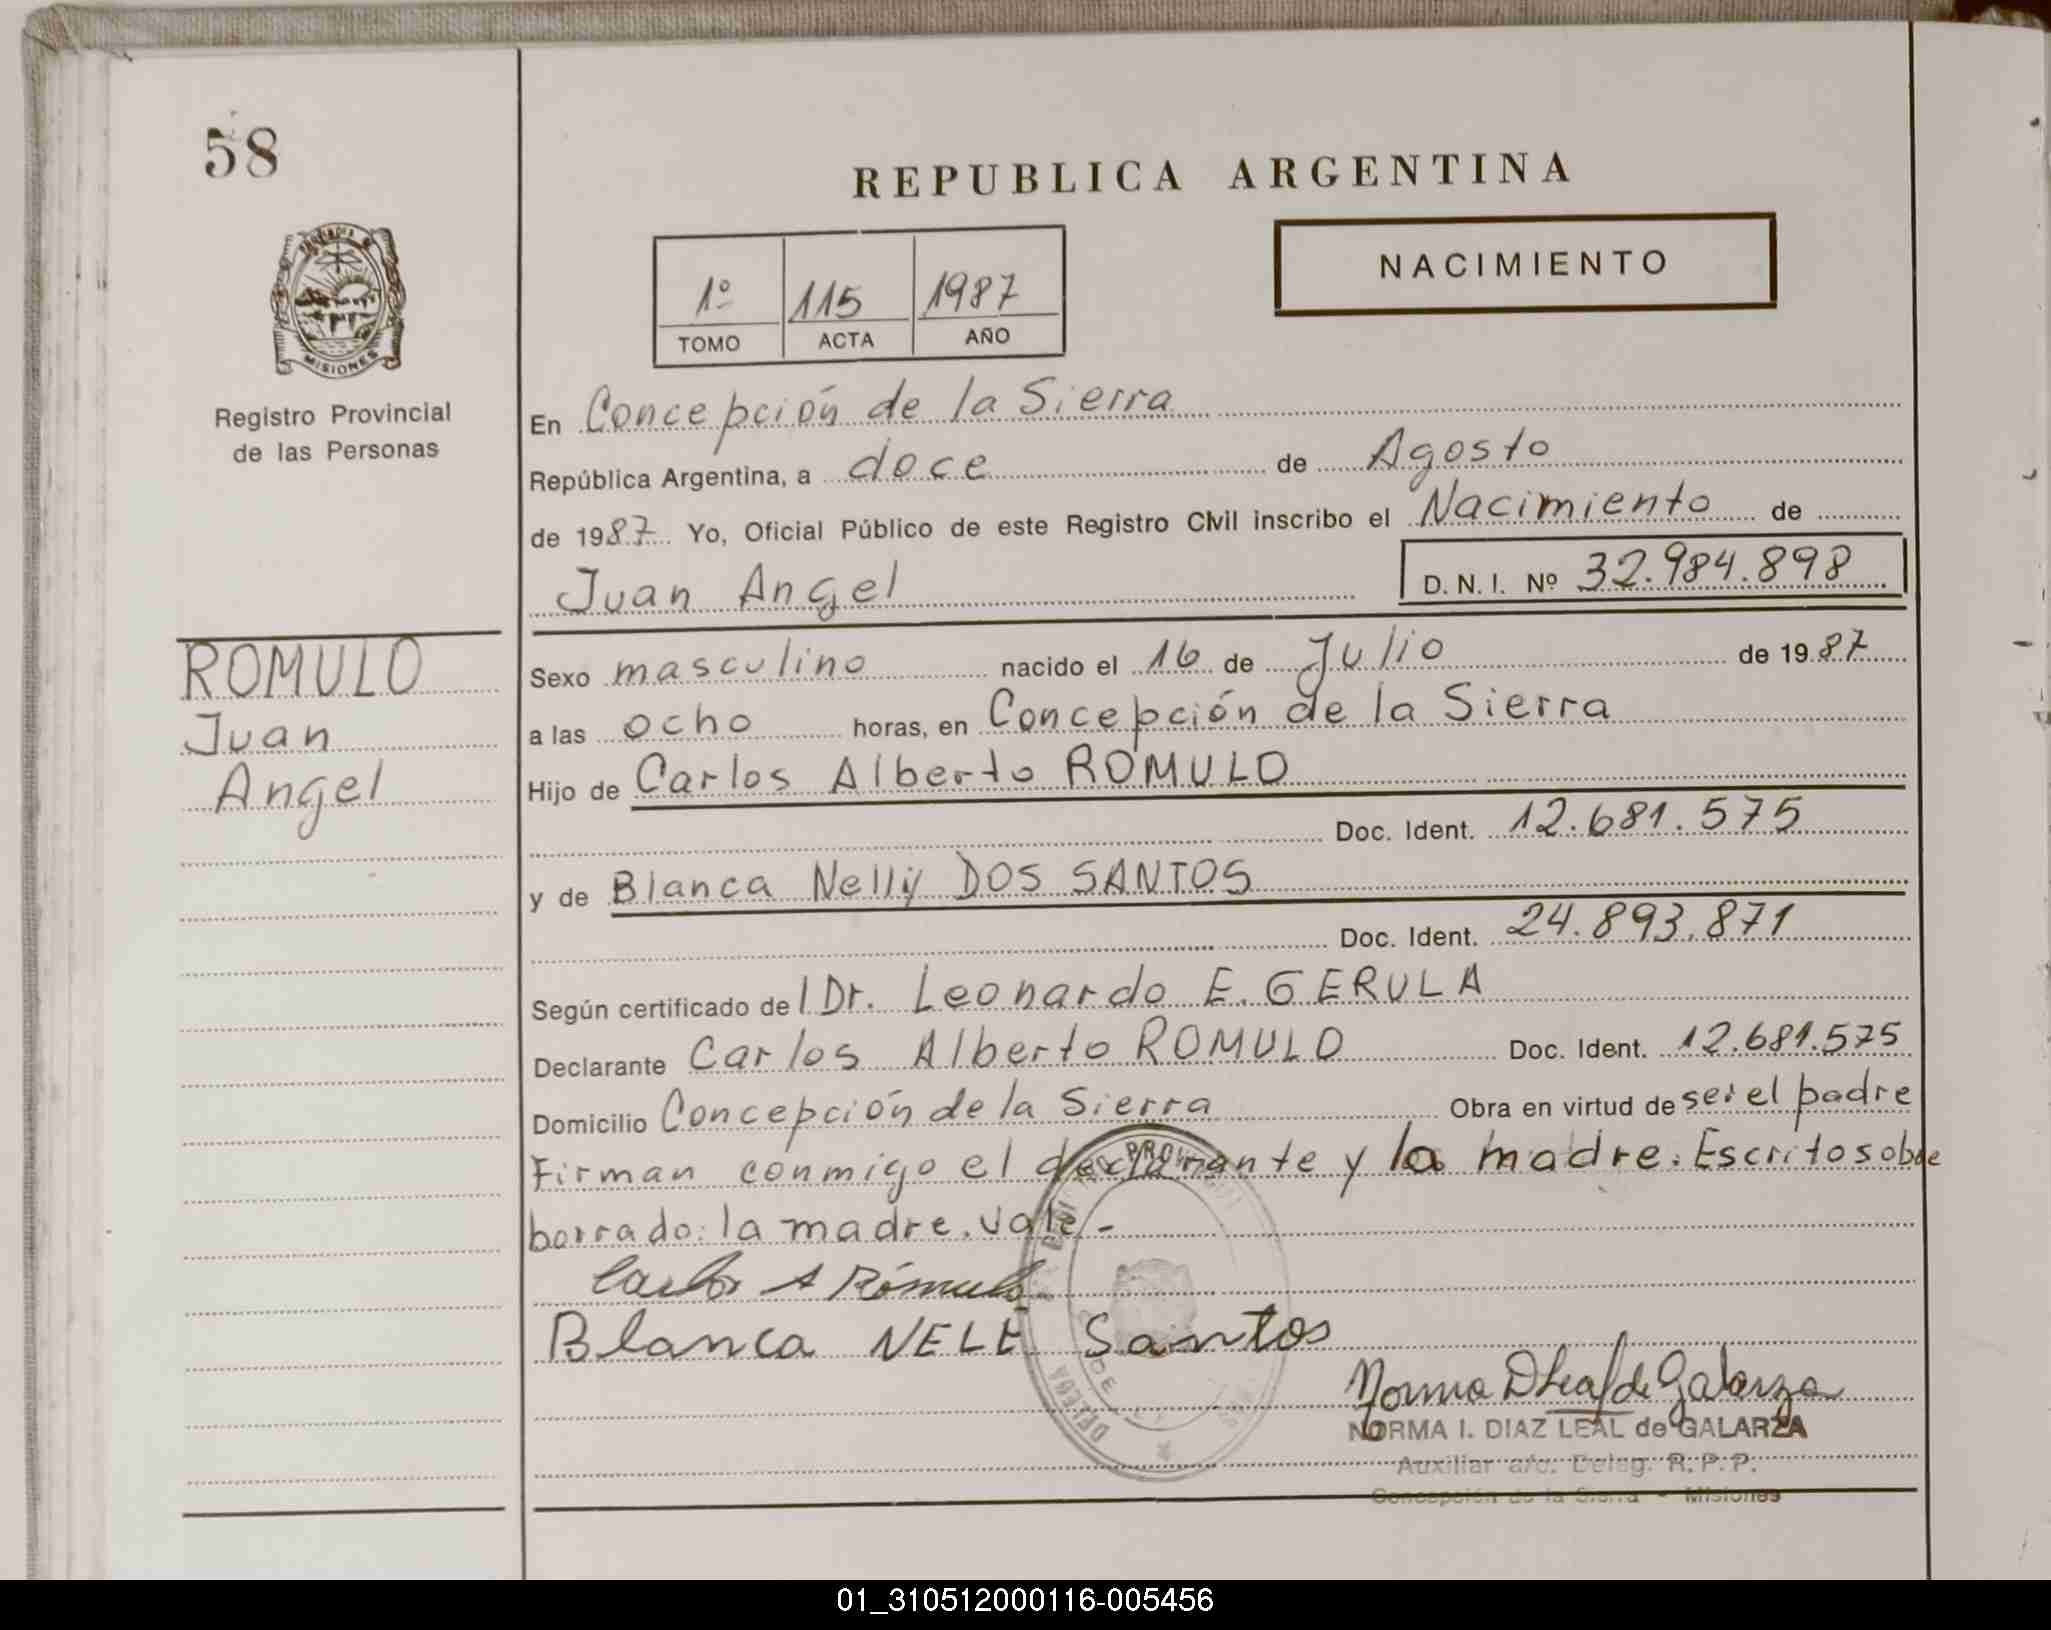 58
REPUBLICA ARGENTINA
NACIMIENTO
1º 115 1987
TOMO ACTA AÑO
MISIONES
Registro Provincial
de las Personas
En Concepción de la Sierra
República Argentina, a doce de Agosto
de 1987 Yo, Oficial Público de este Registro Civil inscribo el Nacimiento de
Juan Angel D. N. I. Nº 32.984.898
ROMULO
Juan
Angel
Sexo masculino nacido el 16 de Julio de 1987
a las ocho horas, en Concepción de la Sierra
Hijo de Carlos Alberto ROMULO
Doc. Ident. 12.681.575
y de Blanca Nelly DOS SANTOS
Doc. Ident. 24.893.871
Según certificado del Dr. Leonardo E. GERULA
Declarante Carlos Alberto ROMULO Doc. Ident. 12.681.575
Domicilio Concepción de la Sierra Obra en virtud de ser el padre
Firman conmigo el declarante y la madre. Escrito sobre
borrado: la madre. vale -
Carlos A Rómulo
Blanca NELE Santos
Norma D Leal de Galarza
NORMA I. DIAZ LEAL de GALARZA
Auxiliar a/c. Deleg. R. P. P.
Concepción de la Sierra - Misiones
01_310512000116-005456